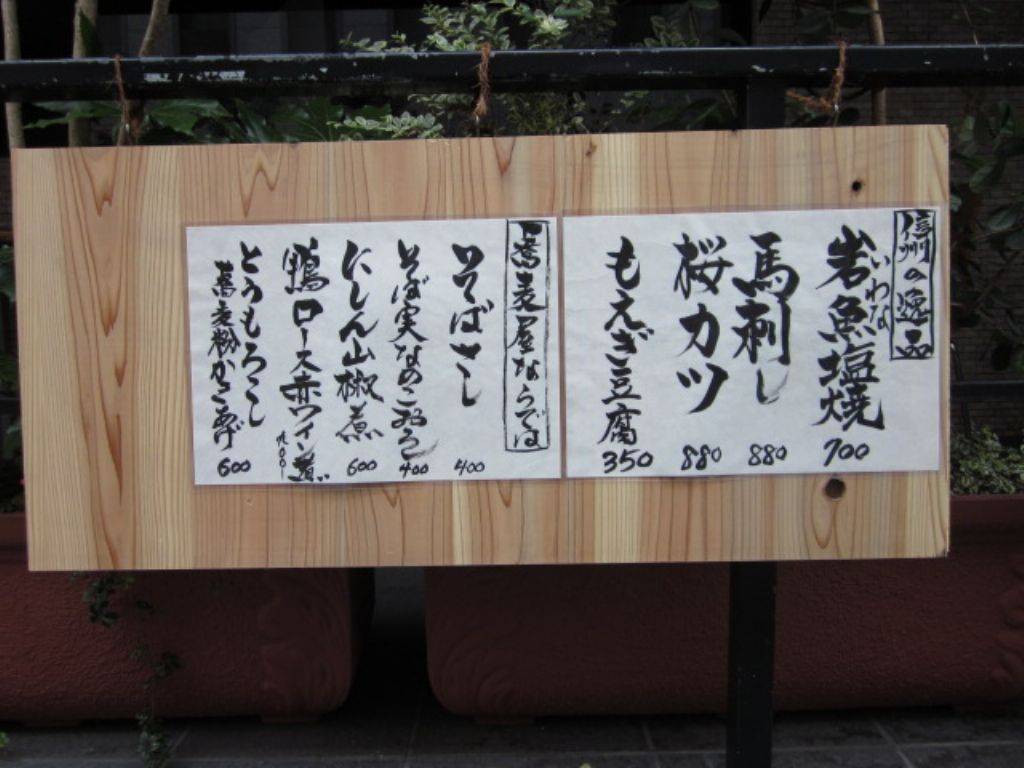 信州の逸品
岩魚塩焼
いわな
700
馬刺し
880
桜カツ
880
もえぎ豆腐
350
蕎麦屋ならでは
そばさし
400
そば実なめこおろし
400
にしん山椒煮
600
鴨ロース赤ワイン煮
九〇〇
とうもろこし
蕎麦粉かきあげ
600